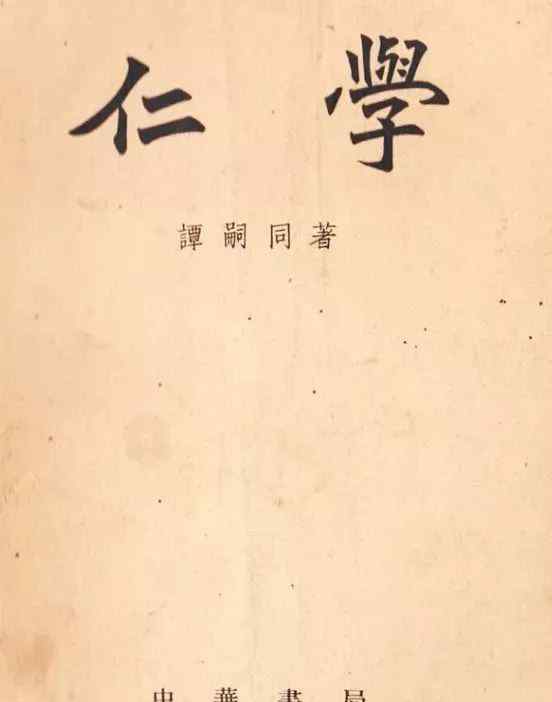 仁學
譚嗣同著
中華書局